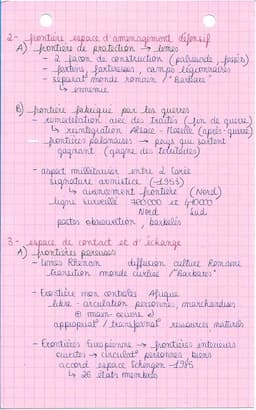 2 - frontière espace d'aménagement défensif
A) frontière de protection → limes
- 2 façon de construction (palissade, fossés)
- fortins, forteresses, camps légionnaires
- séparat° monde romain / "Barbare"
↳ ennemie
B) frontière fabriqué par les guerres
- remodelation avec des traités (fin de guerre)
↳ réintégration Alsace - Moselle (après-guerre)
- frontières polonaises → pays qui sortent
gagnant (gagne des territoires)
- aspect militarisé entre 2 Corée
signature armistice (-1953)
↳ avancement frontière (Nord)
ligne surveillé 700 000 et 410000
Nord Sud
postes observation, barbelés
3 - espace de contact et d'échange
A) frontières poreuses
- limes Rhénan diffusion culture Romaine
transition monde civilisé / "Barbares"
- Frontière non contrôlés Afrique
libre-circulation personnes, marchandises
⊕ main-oeuvre
appropriat° / transformat° ressources naturels
- Frontières Européenne → frontières intérieurs
ouvertes → circulat° personnes, biens
accord espace Schengen - 1985
↳ 26 états membres